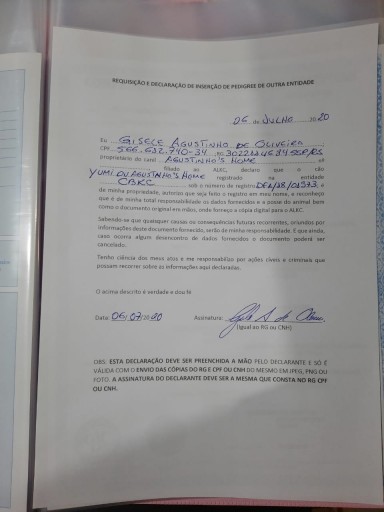 REQUISIÇÃO E DECLARAÇÃO DE INSERÇÃO DE PEDIGREE DE OUTRA ENTIDADE
06 de JULHO 20 20
Eu GISELE AGUSTINHO DE OLIVEIRA
CPF 566.632.740-34 RG SSP/RS
proprietário do canil AGUSTINHO'S HOME
filiado ao ALKC, declaro que o cão
YUMI DU AGUSTINHO'S HOME registrado na entidade
CBKC sob o número de registro e
de minha propriedade, autorizo que seja feito o registro em meu nome, e reconheço
que é de minha total responsabilidade os dados fornecidos e a posse do animal bem
como o documento original em mãos, onde forneço a cópia digital para o ALKC.
Sabendo-se que quaisquer causas ou consequências futuras recorrentes, oriundos por
informações deste documento fornecido, serão de minha responsabilidade. E que ainda,
caso ocorra algum desencontro de dados fornecidos o documento poderá ser
cancelado.
Tenho ciência dos meus atos e me responsabilizo por ações cíveis e criminais que
possam recorrer sobre as informações aqui declaradas.
O acima descrito é verdade e dou fé
Data: 06/07/2020 Assinatura:
(Igual ao RG ou CNH)
OBS: ESTA DECLARAÇÃO DEVE SER PREENCHIDA A MÃO PELO DECLARANTE E SÓ É
VÁLIDA COM O ENVIO DAS CÓPIAS DO RG E CPF OU CNH DO MESMO EM JPEG, PNG OU
FOTO. A ASSINATURA DO DECLARANTE DEVE SER A MESMA QUE CONSTA NO RG CPF
OU CNH.